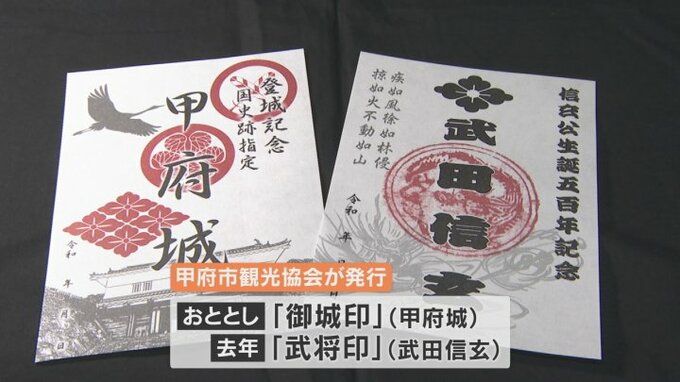 登城記念
国史跡指定
甲府城
令和 年 月 日
信玄公生誕五百年記念
武田信玄
疾如風徐如林侵
掠如火不動如山
令和 年
甲府市観光協会が発行
おととし「御城印」(甲府城)
去年「武将印」(武田信玄)